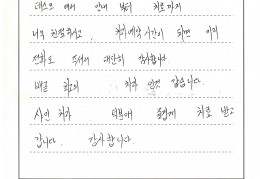 데스크 에서 안내 부터 치료까지
너무 친절하시고, 치과예약 시간이 되면 미리
전화도 주셔서 대단히 감사합니다.
배곧 최고의 치과 인것 같습니다.
사인 치과 덕분에 즐겁게 치료 받고
갑니다. 감사합니다.